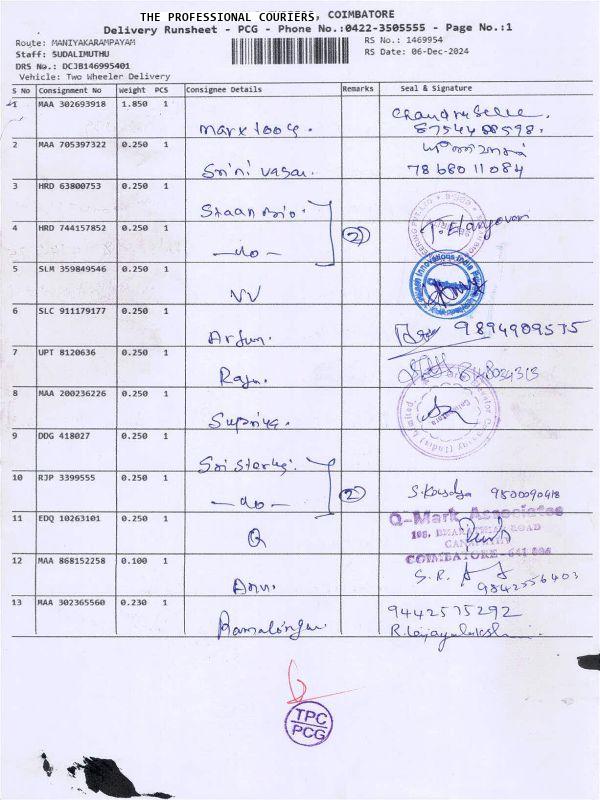 THE PROFESSIONAL COURIERS, COIMBATORE
Delivery Runsheet - PCG - Phone No.:0422-3505555 - Page No.:1
Route: MANIYAKARAMPAYAM
RS No.: 1469954
Staff: SUDALIMUTHU
RS Date: 06-Dec-2024
DRS No.: DCJB146995401
Vehicle: Two Wheeler Delivery
S No Consignment No Weight PCS Consignee Details Remarks Seal & Signature
1 MAA 302693918 1.850 1
2 MAA 705397322 0.250 1 7868011084
3 HRD 63800753 0.250 1
4 HRD 744157852 0.250 1 -do- 2 T. Elangovan
5 SLM 359849546 0.250 1 VV
6 SLC 911179177 0.250 1 Arjun. 9894909575
7 UPT 8120636 0.250 1 Raju.
8 MAA 200236226 0.250 1 Supriya.
9 DDG 418027 0.250 1
10 RJP 3399555 0.250 1 -do- 2
11 EDQ 10263101 0.250 1 Q Q-Mark Associates
COIMBATORE
12 MAA 868152258 0.100 1 S.R. 9842556403
13 MAA 302365560 0.230 1 9442575292
TPC
PCG